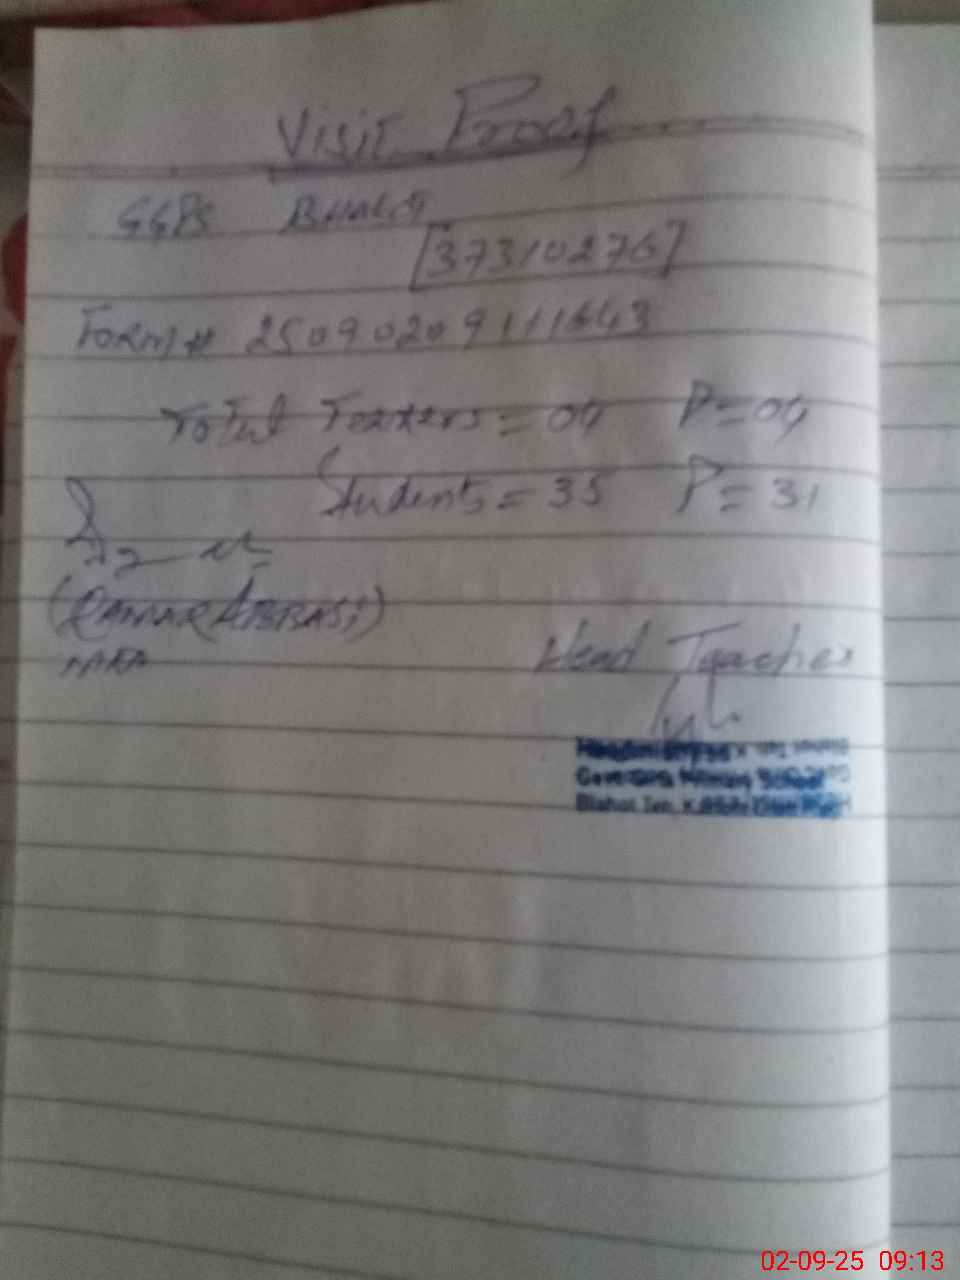 Visit Proof
GGPS BHALOT
[37310276]
Form # 25090209111643
Total Teachers = 04 P = 04
Students = 35 P = 31
(QAMAR ABBASI)
Head Teacher
Govt Girls Primary School
02-09-25 09:13